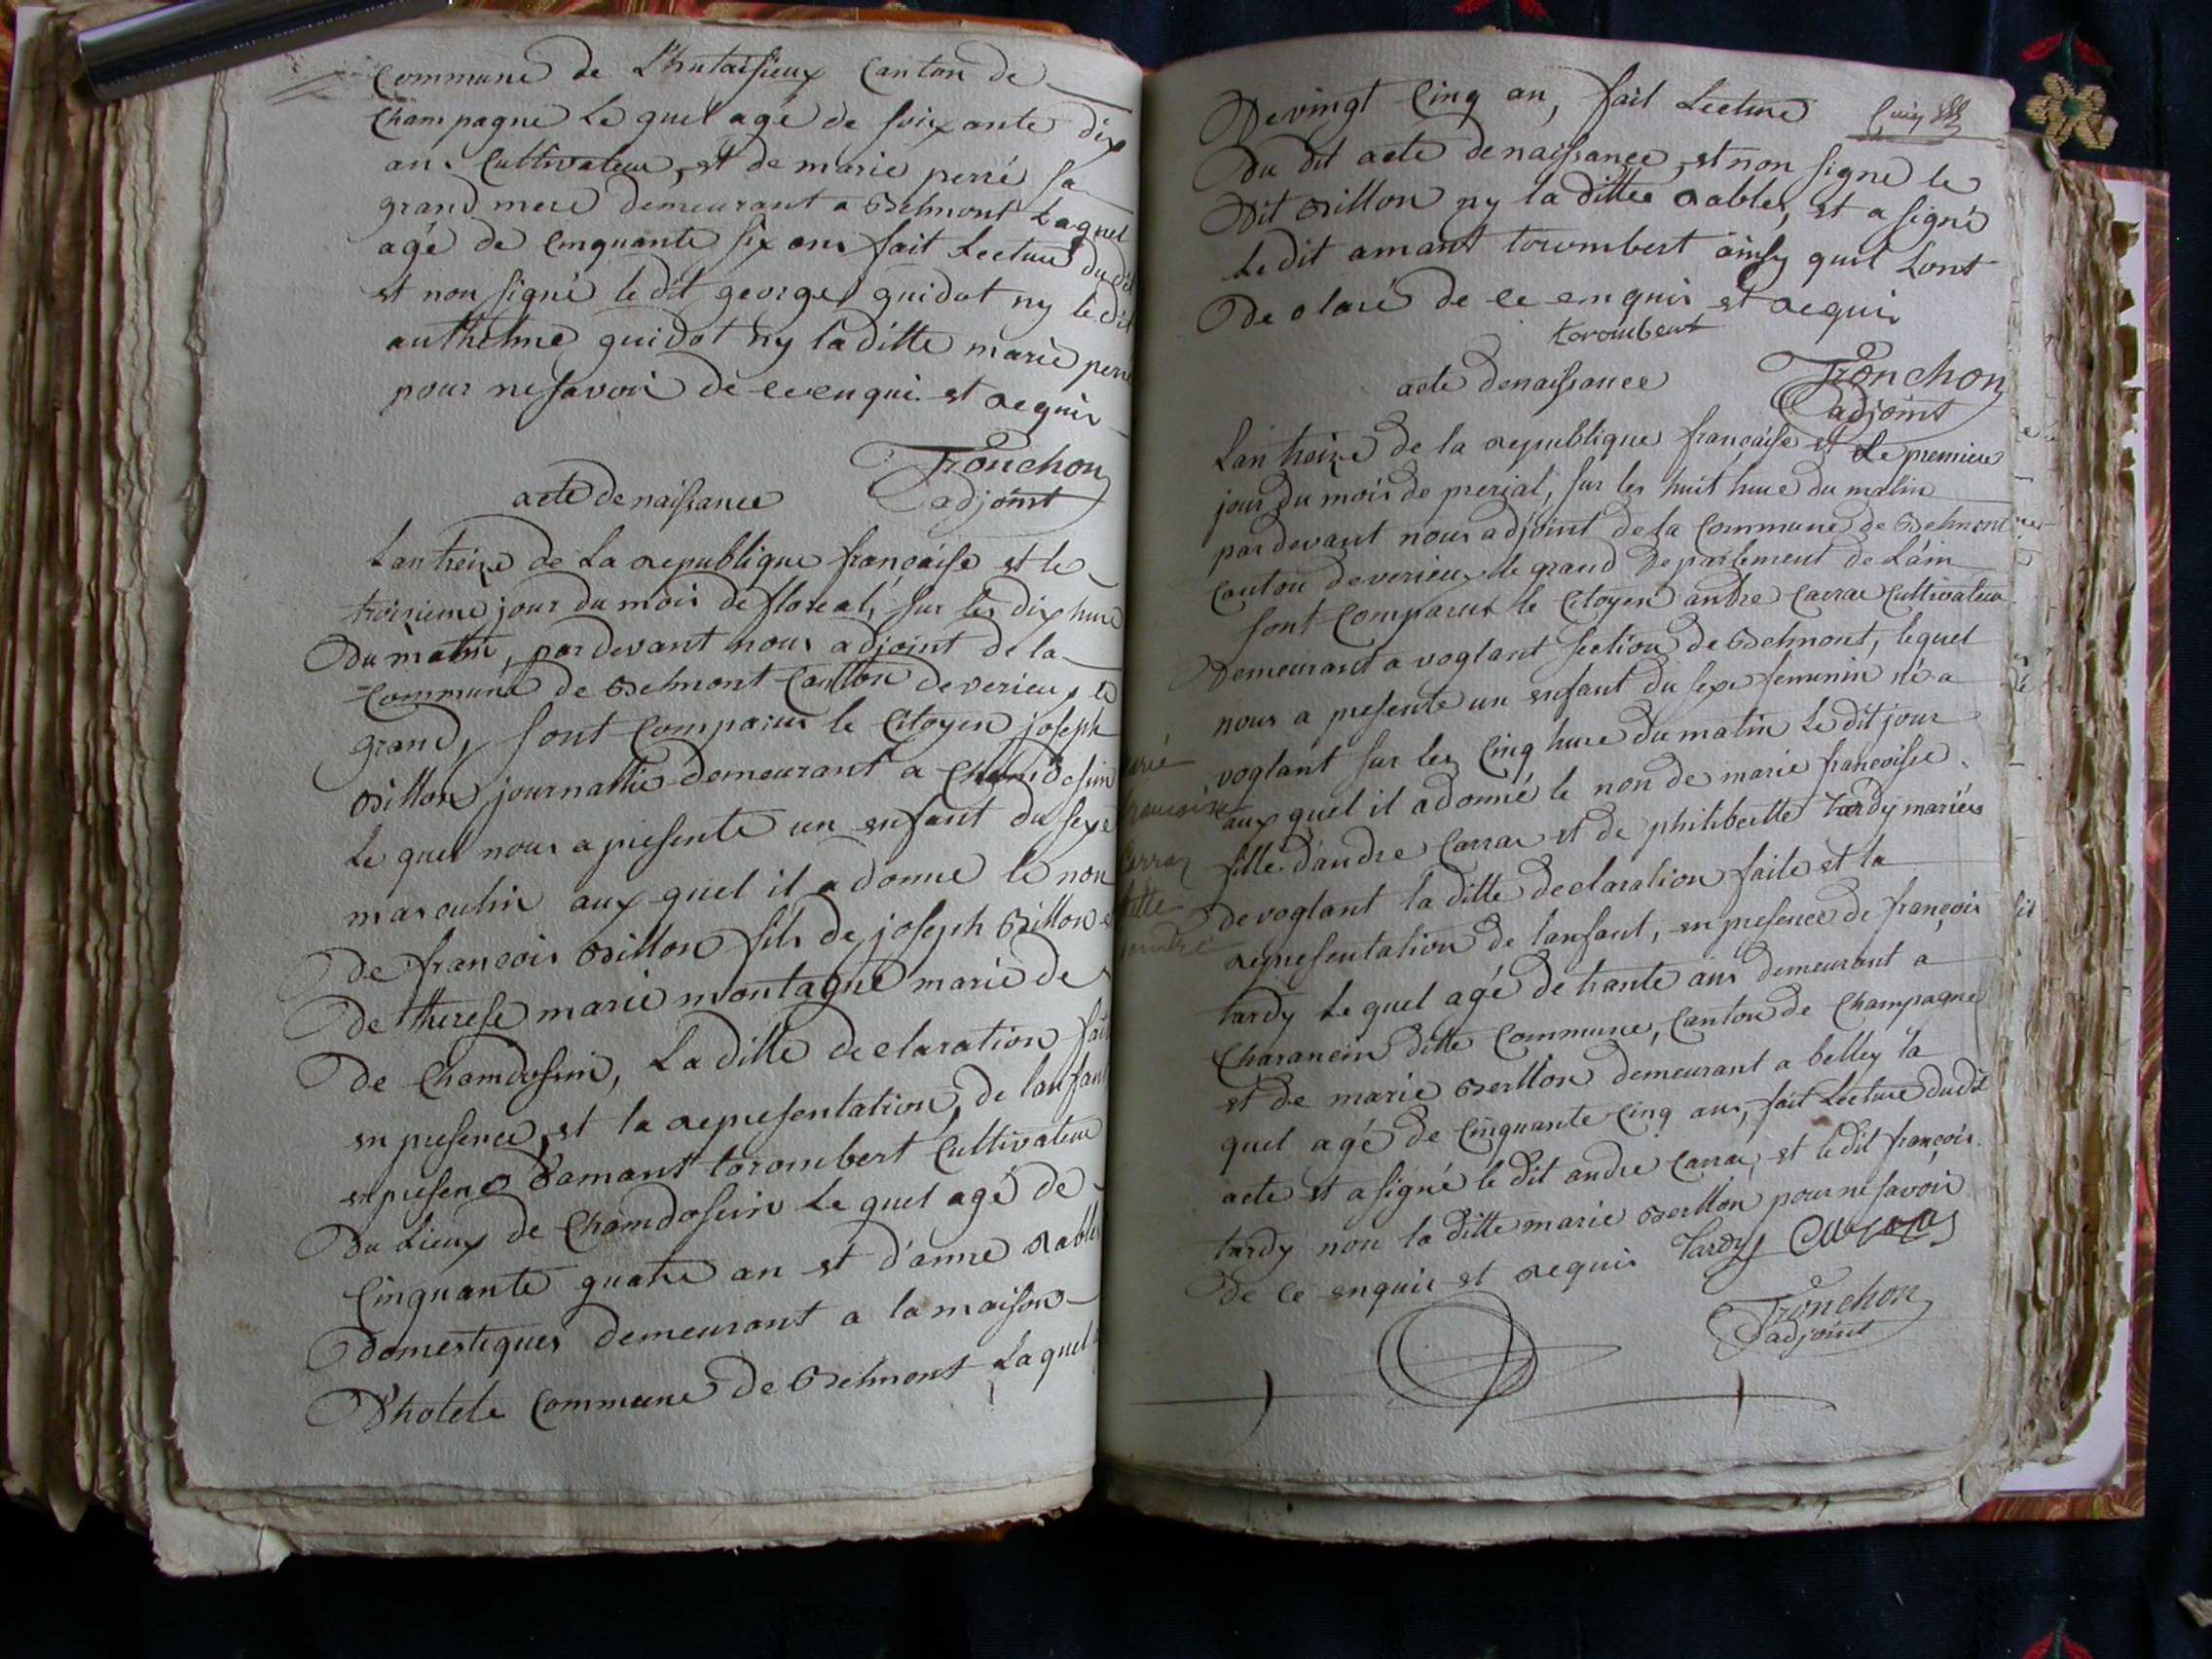 Commune de Chutaisieux Canton de
Champagne Le quel agé de soixante dix
ans Cultivateur, et de marie perré sa
grand mere demeurant a Belmont Laquel
agé de Cinquante six ans fait Lecture du dit
et non signé le dit george guidot ny le dit
anthelme guidot ny la ditte marie perré
pour ne savoir de ce enqui et requis
Tronchon
adjoint
acte de naissance
Lan treize de La republique française et le
troisieme jour du mois de floreal, sur les dix hure
Du matin, par devant nous adjoint de la
Commune de Belmont Canton de verieux le
grand, sont Comparus le Citoyen joseph
Billon journallie demeurant a Chamdosin
Le quel nous a presente un enfant du sexe
masculin aux quel il a donne le non
De françois Billon fils de joseph Billon et
De therese marie montagne marié de
De Chamdossin, La ditte declaration fait
en presence, et la representation, de lanfant
en presence D'amant torombert Cultivateur
Du Lieux de Chamdosein Le quel agé de
Cinquante quatre an et d'anne Rables
Domestiques demeurant a la maison
D'hotele Commune de Belmont Laquel
De vingt Cinq an, fait Lecture
Du dit acte de naissance, et non signe le
Dit Billon ny la dittee Rables, et a signé
Le dit amant torombert ainsy quil Lont
De clare de ce enquis et requis
torombert
Tronchon
adjoint
acte de naissance
Lan treize de la republique française et Le premiere
jour du mois de prerial, sur les huit hure du matin
par devant nous adjoint de la Commune de Belmont
Canton de verieux le grand Departement de Lain
sont Comparus le Citoyen andre Carrar Cultivateur
Demeurant a voglant section de Belmont, lequel
nous a presente un enfant du sexe feminin né a
voglant sur les Cinq hure du matin Le dit jour
aux quel il a donné le non de marie francoisse
fille d'andre Carrar et de philibertte tardy mariés
De voglant la ditte declaration faite et la
representation de lanfant, en presence de françois
tardy Le quel agé de trante ans demeurant a
Charancin ditte Commune, Canton de Champagne
et de marie Bertton demeurant a belley la
quel agé de Cinquante Cinq ans, fait Lecture du dit
acte et a signé le dit andre Carrar, et le dit françois
tardy non la ditte marie Bertton pour ne savoir
De ce enquis et requis Tardy
Tronchon
adjoint
marié
francoise
Carraz
fille
d'andré